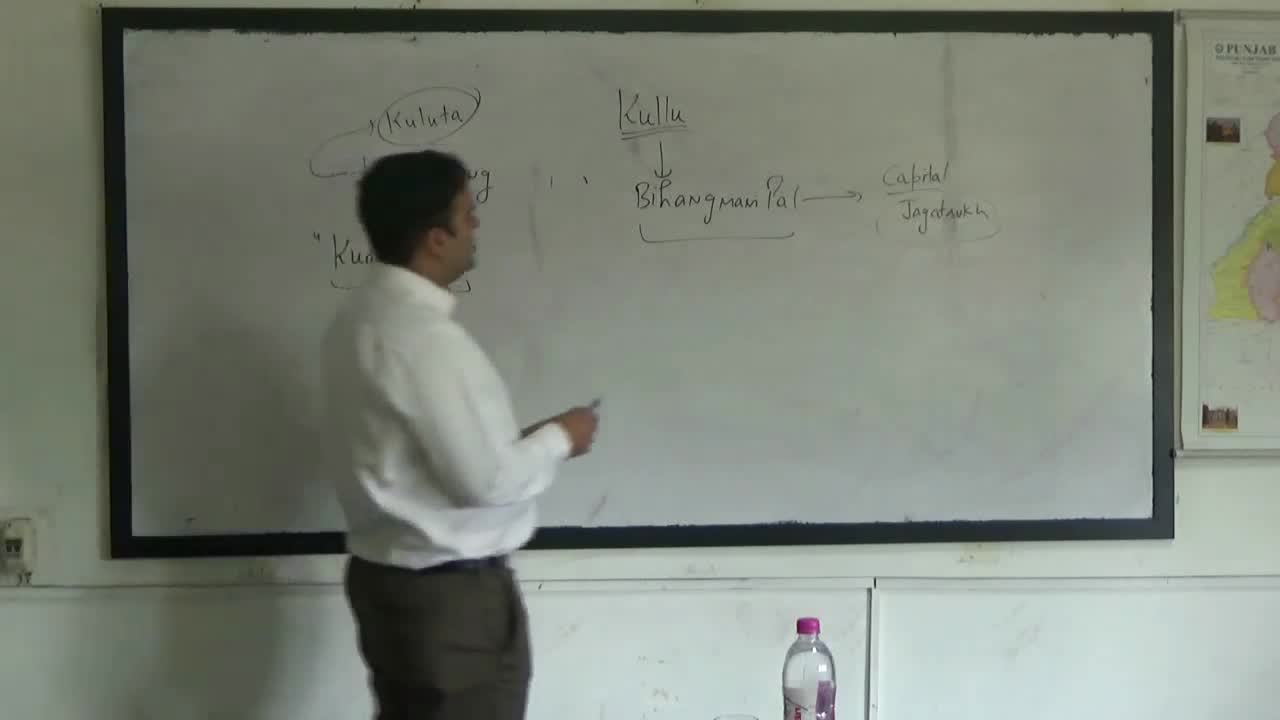 Kuluta
Kullu
Bihangmani Pal
Capital
Jagatsukh
PUNJAB